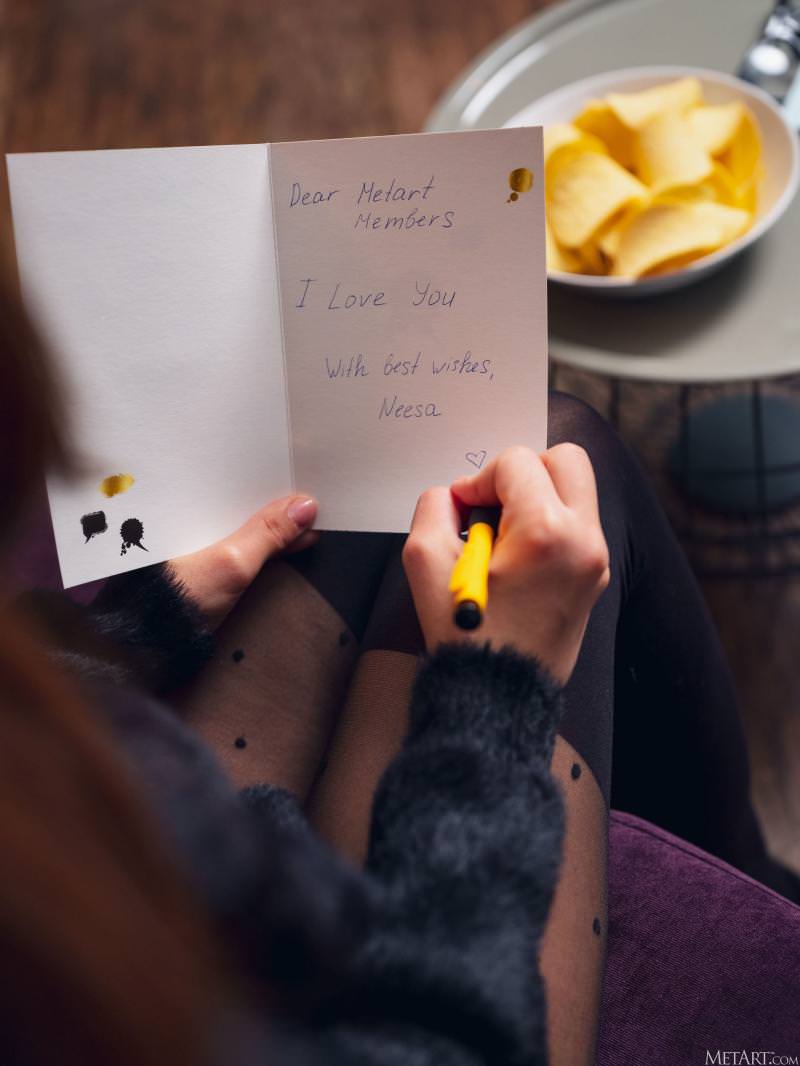 Dear Metart
Members
I Love You
With best wishes,
Neesa
METART.COM